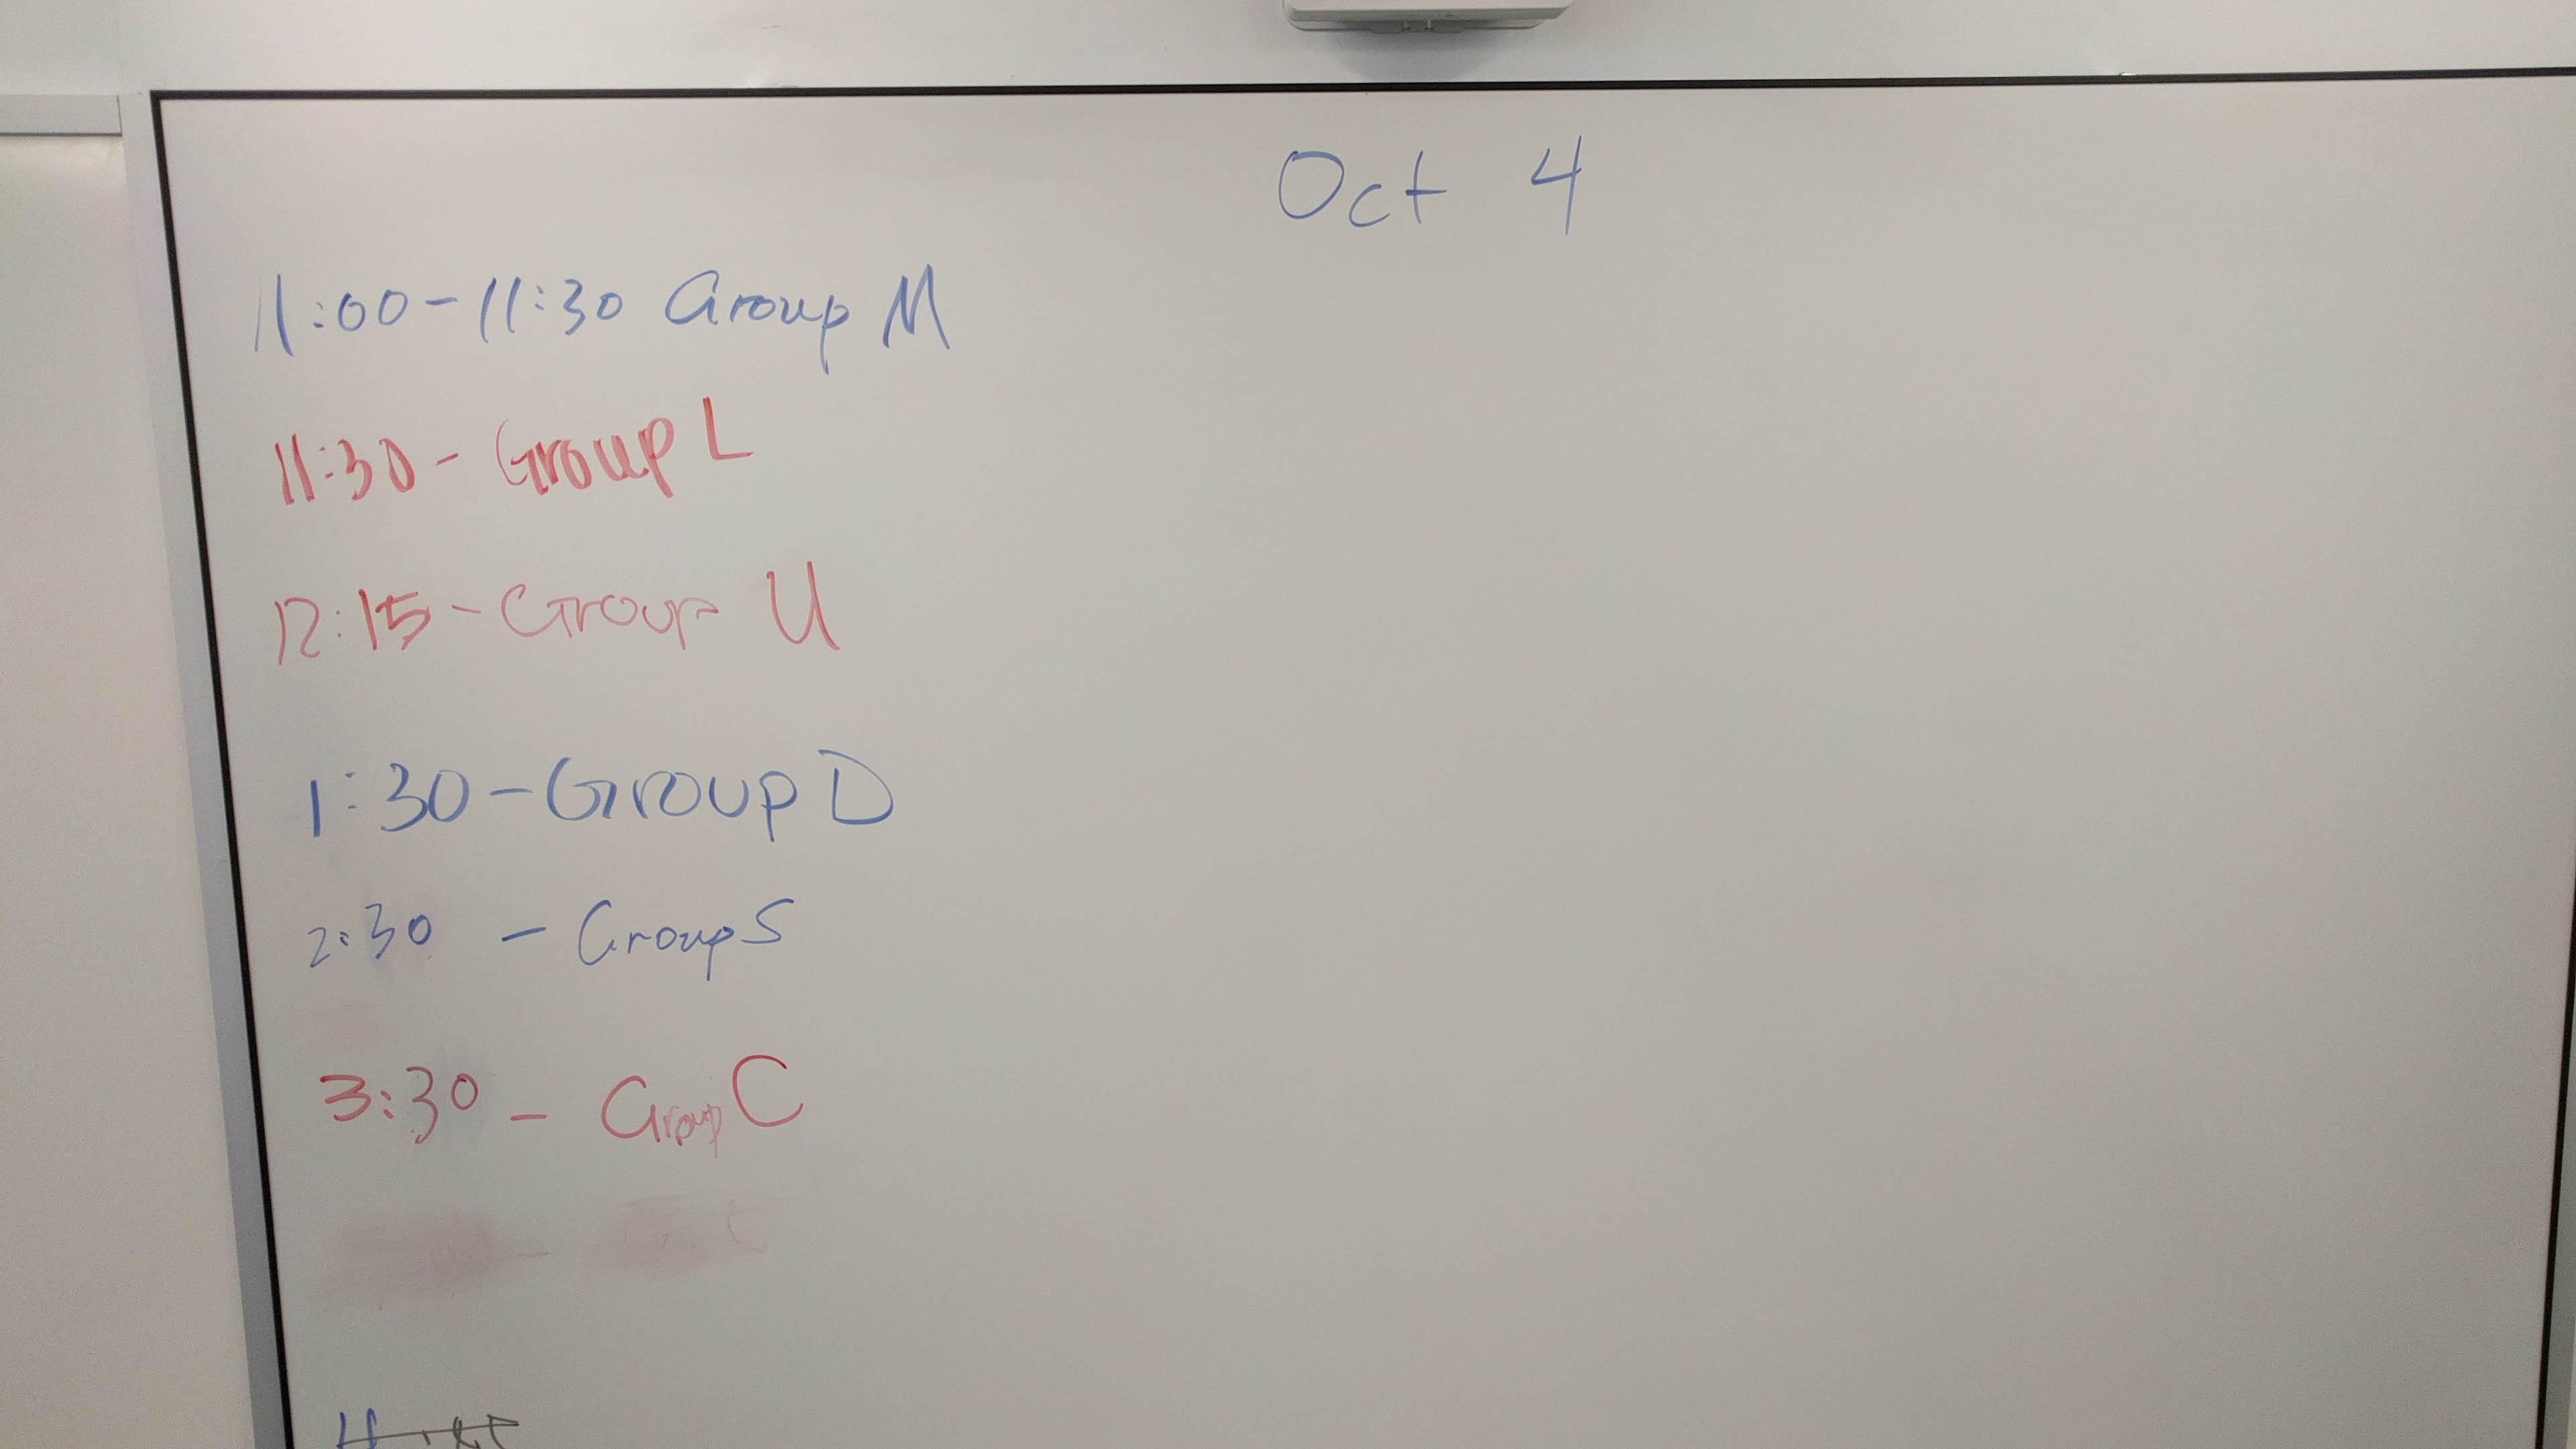 Oct 4
11:00-11:30 Group M
11:30 - Group L
12:15 - Group U
1:30 - Group D
2:30 - Group S
3:30 - Group C